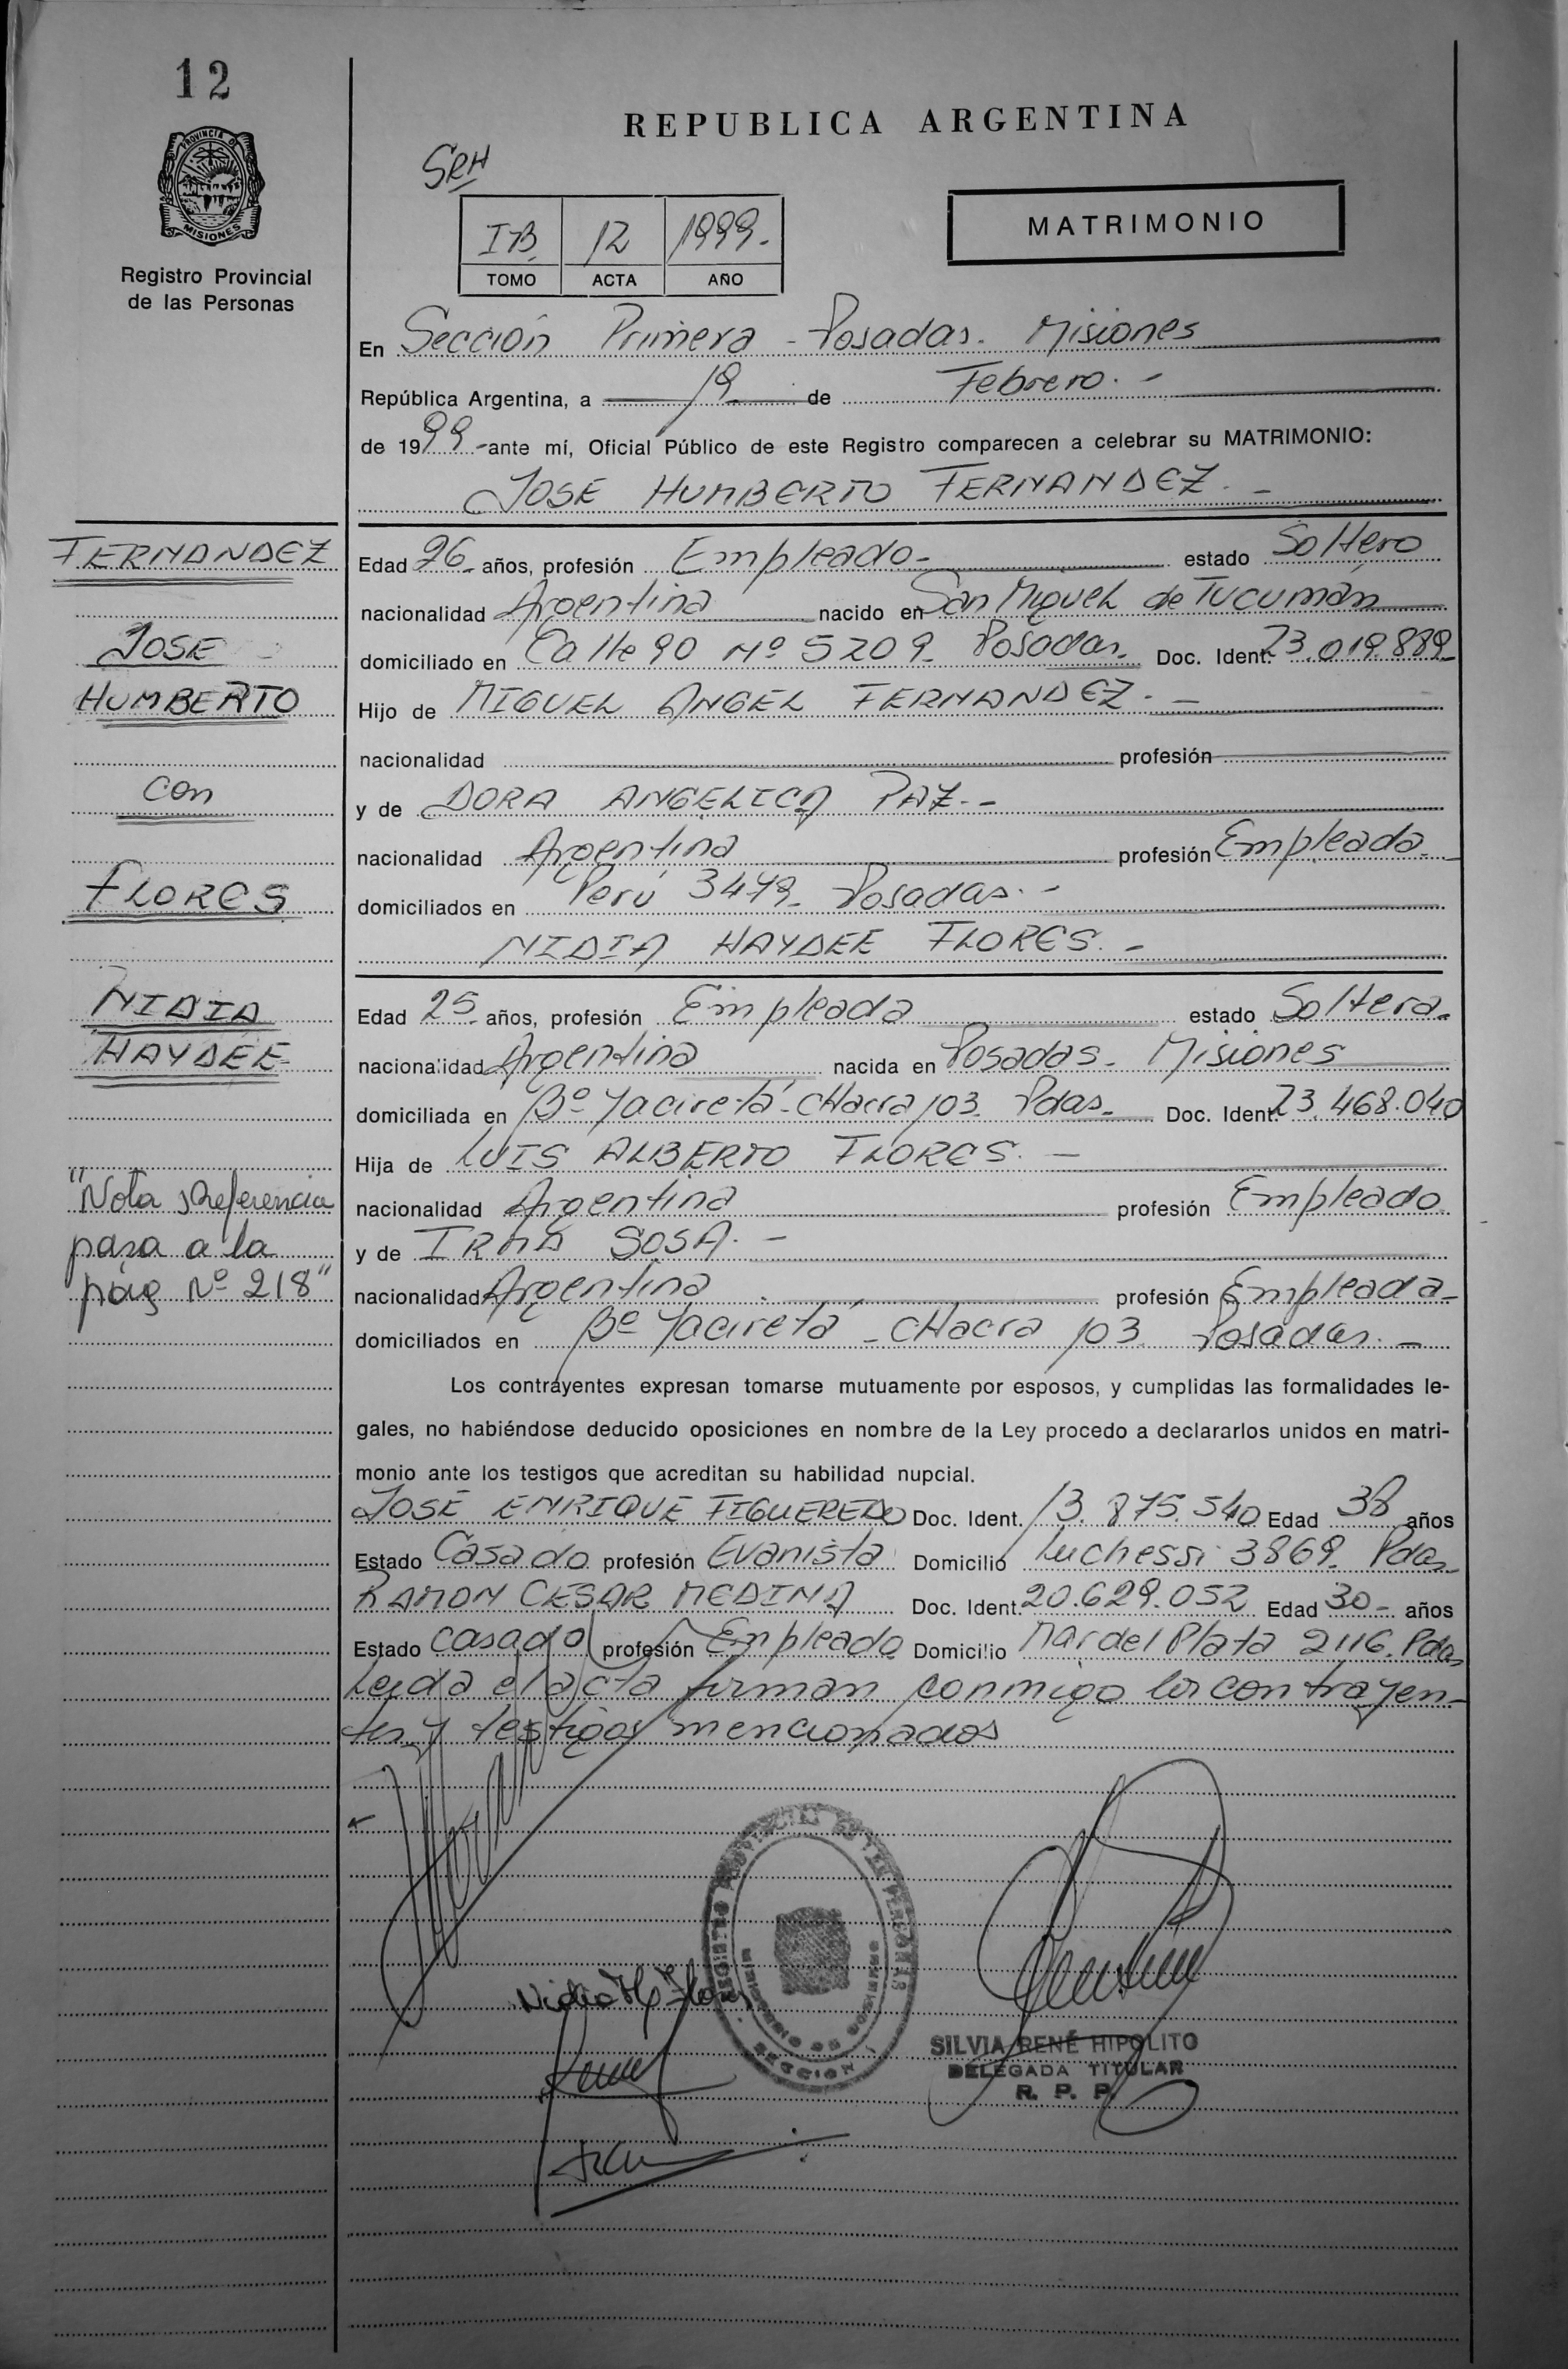 12
PROVINCIA DE
MISIONES
Registro Provincial
de las Personas
REPUBLICA ARGENTINA
SRH
IB. 12 1999.-
TOMO ACTA AÑO
MATRIMONIO
En Sección Primera - Posadas. Misiones
República Argentina, a 19 de Febrero. -
de 1999 -ante mí, Oficial Público de este Registro comparecen a celebrar su MATRIMONIO:
JOSE HUMBERTO FERNANDEZ. -
FERNANDEZ
JOSE
HUMBERTO
con
FLORES
NIDIA
HAYDEE
"Nota Referencia
pasa a la
pág Nº 218"
Edad 26- años, profesión Empleado- estado Soltero
nacionalidad Argentina nacido en San Miguel de Tucumán
domiciliado en Calle 90 Nº 5209- Posadas. Doc. Ident. 23.019.889
Hijo de MIGUEL ANGEL FERNANDEZ. -
nacionalidad profesión
y de DORA ANGELICA PAZ. -
nacionalidad Argentina profesión Empleada.
domiciliados en Perú 3479- Posadas. -
NIDIA HAYDEE FLORES. -
Edad 25- años, profesión Empleada estado Soltera.
nacionalidad Argentina nacida en Posadas- Misiones
domiciliada en Bº Yacireta - CHacra 103. Pdas. Doc. Ident. 23.468.040
Hija de LUIS ALBERTO FLORES. -
nacionalidad Argentina profesión Empleado.
y de IRMA SOSA. -
nacionalidad Argentina profesión Empleada-
domiciliados en Bº Yacireta - CHacra 103 Posadas. -
Los contrayentes expresan tomarse mutuamente por esposos, y cumplidas las formalidades le-
gales, no habiéndose deducido oposiciones en nombre de la Ley procedo a declararlos unidos en matri-
monio ante los testigos que acreditan su habilidad nupcial.
JOSÉ ENRIQUE FIGUEREDO Doc. Ident. 13.875.540 Edad 38 años
Estado Casado profesión Evanista Domicilio Luchessi 3869- Pdas-
RAMON CESAR MEDINA Doc. Ident. 20.629.052 Edad 30- años
Estado casado profesión Empleado Domicilio Mar del Plata 2116. Pdas
Leida el acta firman conmigo los contrayen-
tes y testigos mencionados
Nidia H. Flores
REGISTRO PROVINCIAL DE LAS PERSONAS
MINISTERIO DE GOBIERNO
SECCION
SILVIA RENÉ HIPOLITO
DELEGADA TITULAR
R. P. P.